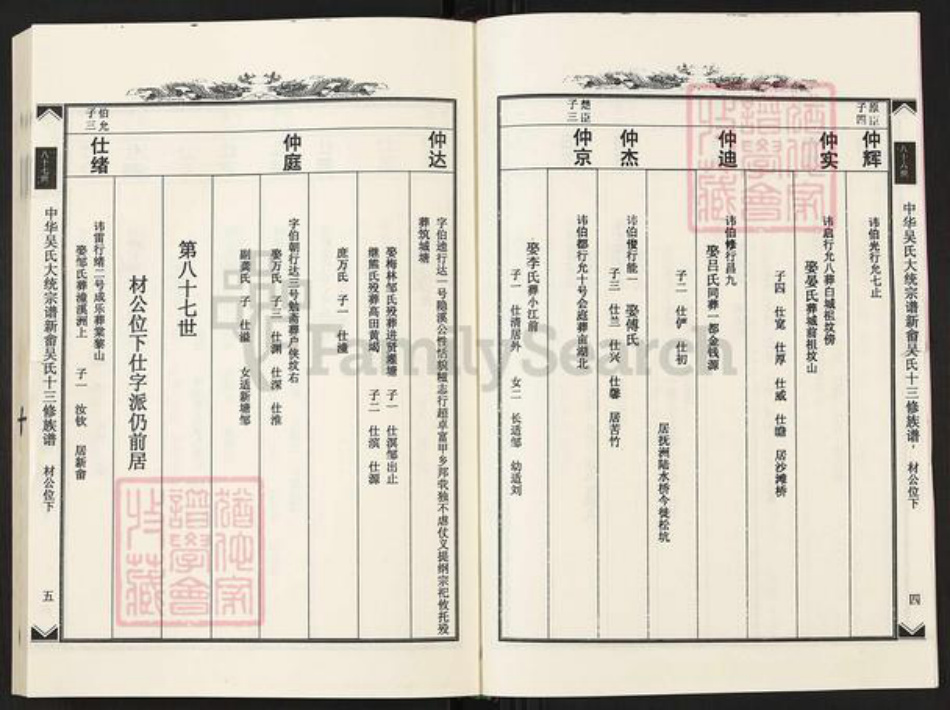 八十六世
中华吴氏大统宗谱新畲吴氏十三修族谱
材公位下
四
原臣
子四
仲辉
讳伯光行允七止
仲实
讳启行允八葬白城祖坟傍
娶晏氏葬城官祖坟山
子四 仕宽 仕厚 仕威 仕瞻 居沙滩桥
仲迪
讳伯修行昌九
娶吕氏同葬一都金钱源
子二 仕俨 仕初
居抚洲陆水桥今徙松坑
仲杰
讳伯俊行能一 娶傅氏
子三 仕兰 仕兴 仕馨 居苦竹
楚臣
子三
仲京
讳伯都行允十号会庭葬亩湖北
娶李氏葬小江前
子一 仕清居外 女二 长适邹 幼适刘
仲达
字伯迪行达一号隐溪公性恬貌 志行超卓富甲乡邦我独不虐仗义提纲宗祀攸托殁
葬筑城塘
娶梅林邹氏殁葬进贤 塘 子一 仕溟邹出止
继熊氏殁葬高田黄埸 子二 仕滨 仕源
庶万氏 子一 仕潼
仲庭
字伯朝行达三号勉斋葬户侠坟右
娶万氏 子三 仕渊 仕深 仕淮
副龚氏 子 仕溢 女适新塘邹
第八十七世
材公位下仕字派仍前居
伯允
子三
仕绪
讳雷行绪二号成乐葬棠黎山
娶邹氏葬潦溪洲上 子一 汝钦 居新畲
八十七世
中华吴氏大统宗谱新畲吴氏十三修族谱
材公位下
五
FamilySearch